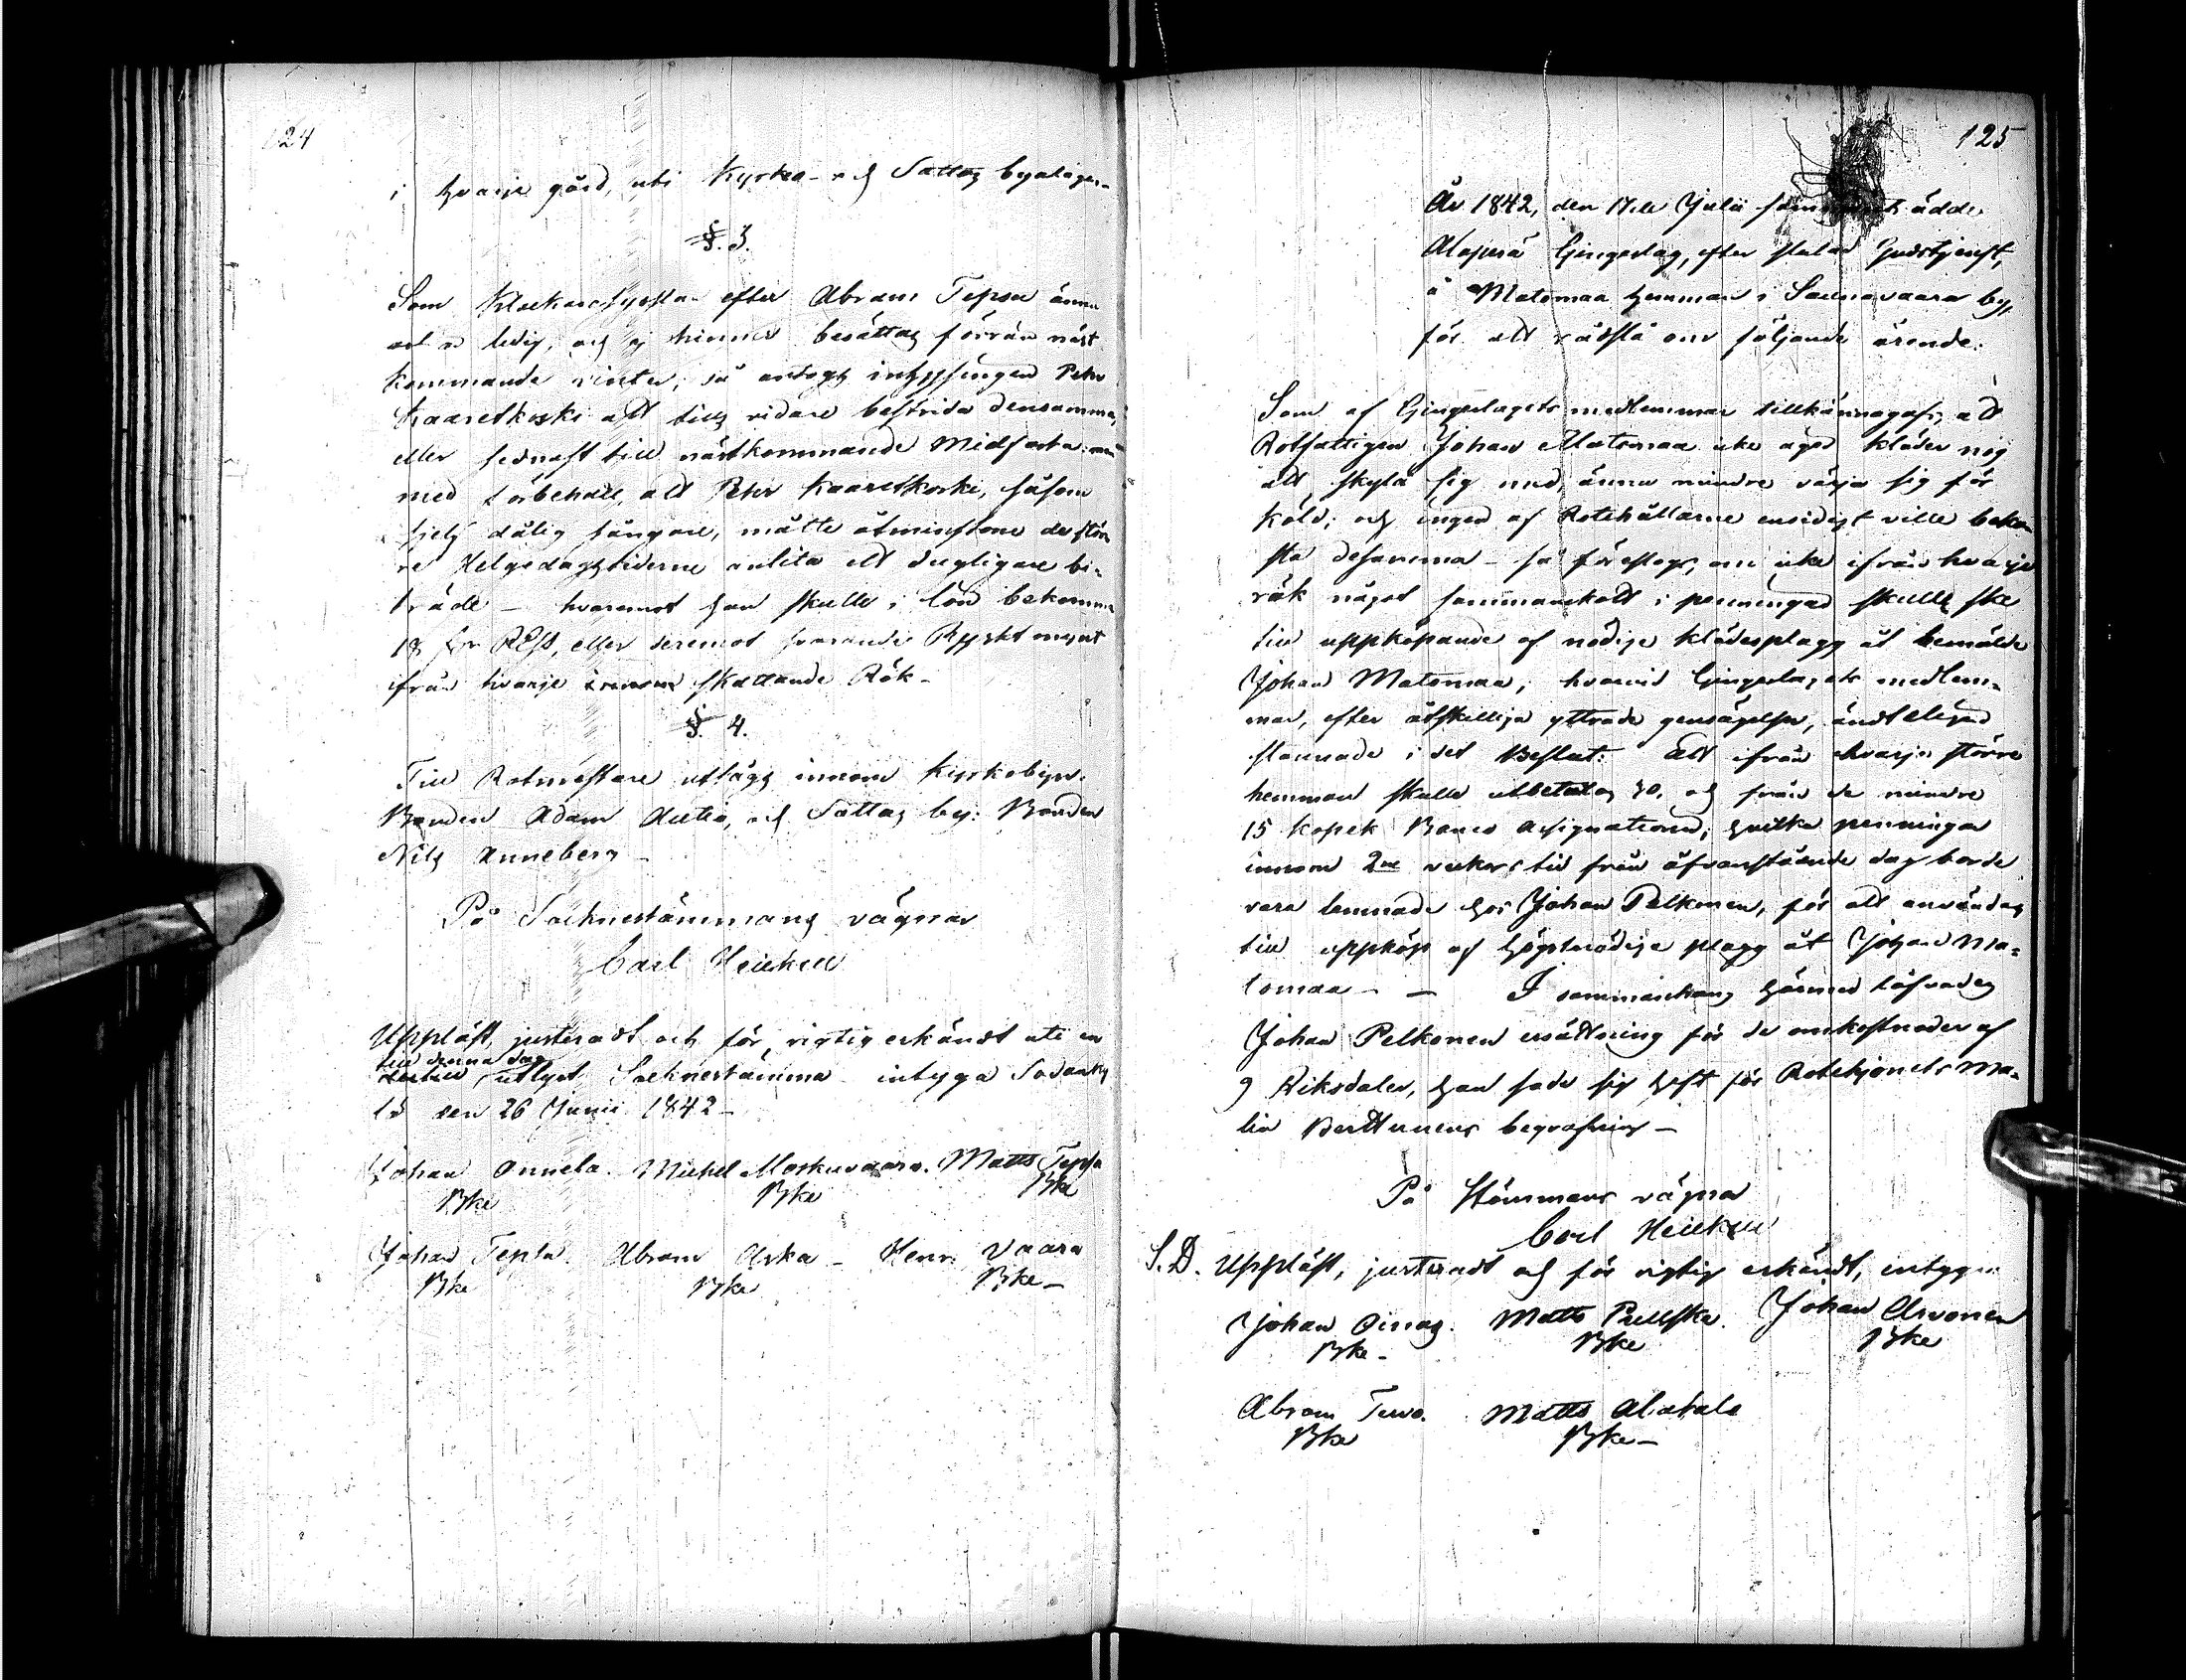 124
i hvarje gård, uti Kyrko- och Sattas byalager.
§. 3.
Som Klockaresysslan efter Abram Tepsa ännu
ledig, och ej hinner besättas förrän näst
kommande vinter, så antogs inhysingen Petter
Kaaretkoski att tills vidare bestrida densamma,
eller sednast till nästkommande Midfasta:
med förbehåll, att Peter Kaaretkoski, såsom
sjelf dålig sångare, måtte åtminstone de stör
re Helgedagstiderne anlita ett dugligare bi-
träde – hvaremot han skulle i lön bekomma
18 RGSs, eller deremot svarande Ryskt mynt
ifrån hvarje skattande Rök –
§. 4.
Till Rotmästare utsågs innom Kyrkobyn:
Bonden Adam Autio, och Sattas by: Bonden
Nils Anneberg –
På Socknestämmans vägnar
Carl Heickell
Uppläst, justeradt och för rigtig erkändt uti en
till denna dag
utlyst Socknestämma intyga Sodanky
lä den 26 Junii 1842 –
Johan Onnela. Michel Moskuvaara. Matts Tepsa
Bke Bke Bke
Johan Tepsa. Abram Arka – Henr. Vaara
Bke Bke Bke –
125
År 1842, den 17de Julii
Alaperä Gingerlag, efter slutad Gudstjenst,
å Matomaa hemman i Saunavaara by,
för att rådslå om följande ärende:
Som af Gingerlagets medlemmar tillkännagafs, att
Rotfattigen Johan Matomaa icke äger kläder nog
att skyla sig med, ännu mindre värja sig för
köld; och ingen af Rotehållarne ensidigt ville beko
sta desamma – så föreslogs, om icke ifrån hvarje
rök något sammanskott i penningar skulle ske
till uppköpande af nödige klädesplagg åt bemälde
Johan Matomaa; hvarvid Gingerlagets medlem-
mar, efter åtskilliga yttrade gensägelser, ändteligen
stannade i det Beslut: Att ifrån hvarje större
hemman skulle utbetalas 30, och från de mindre
15 Kopek Banco Assignationer; hvilka penningar
innom 2ne veckors tid från ofvanstående dag borde
vara lemnade hos Johan Pelkonen, för att användas
till uppköp af högstnödige plagg åt Johan Ma-
tomaa – – I sammanhang härmed lofvades
Johan Pelkonen ersättning för de omkostnader af
9 Riksdaler, han sade sig haft för Rotehjonets Ma-
lin Berttunens begrafning –
På Stämmans vägnar
Carl Heickell
S. D. Uppläst, justeradt och för rigtig erkändt, intyga
Johan Oinas. Matts Pulska. Johan Arvonen
Bke – Bke Bke
Abram Tervo. Matts Alatalo
Bke Bke –